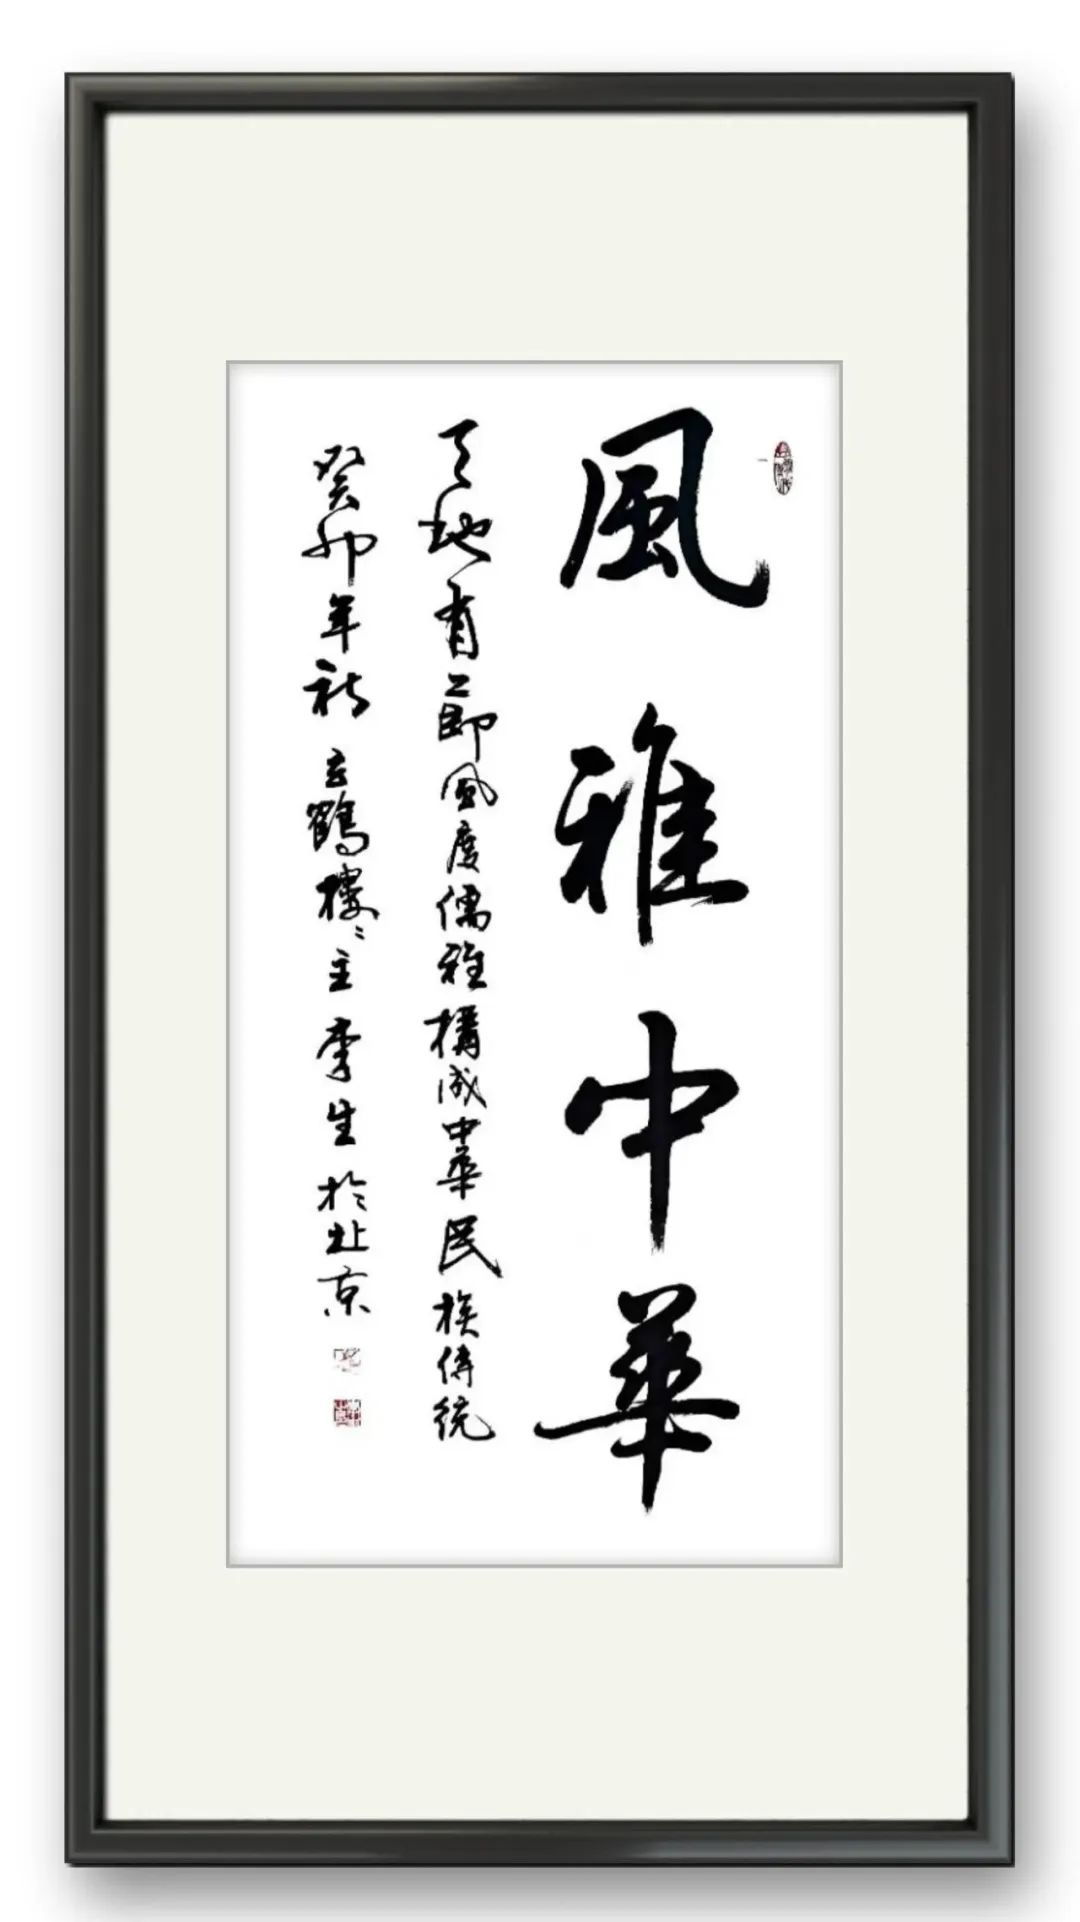 風雅中華
天地有節風度儒雅構成中華民族傳統
癸卯年 鶴樓〻主 李生 於北京